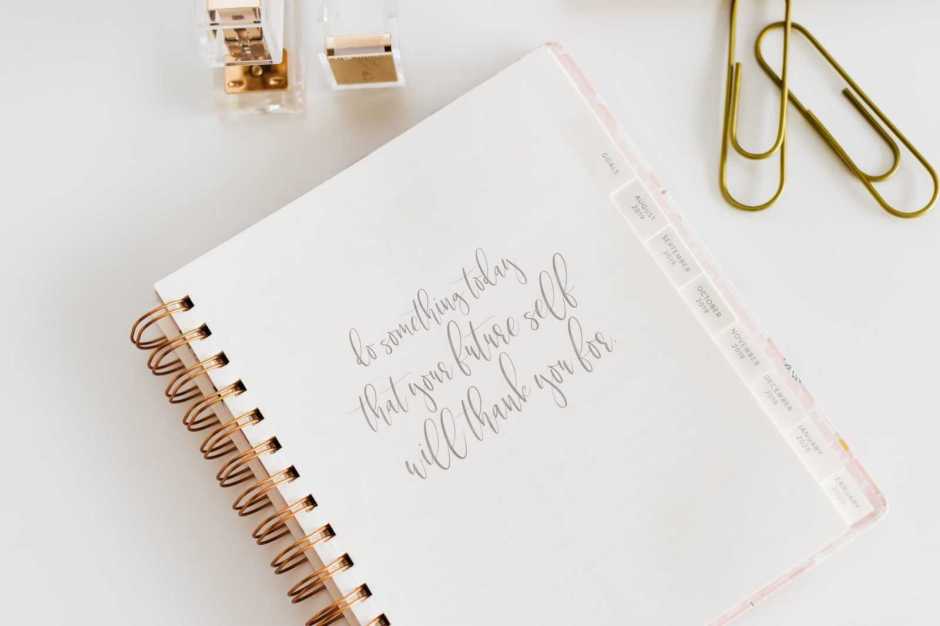 do something today
that your future self
will thank you for.
GOALS
AUGUST
2019
SEPTEMBER
2019
OCTOBER
2019
NOVEMBER
2019
DECEMBER
2019
JANUARY
2020
JANUARY